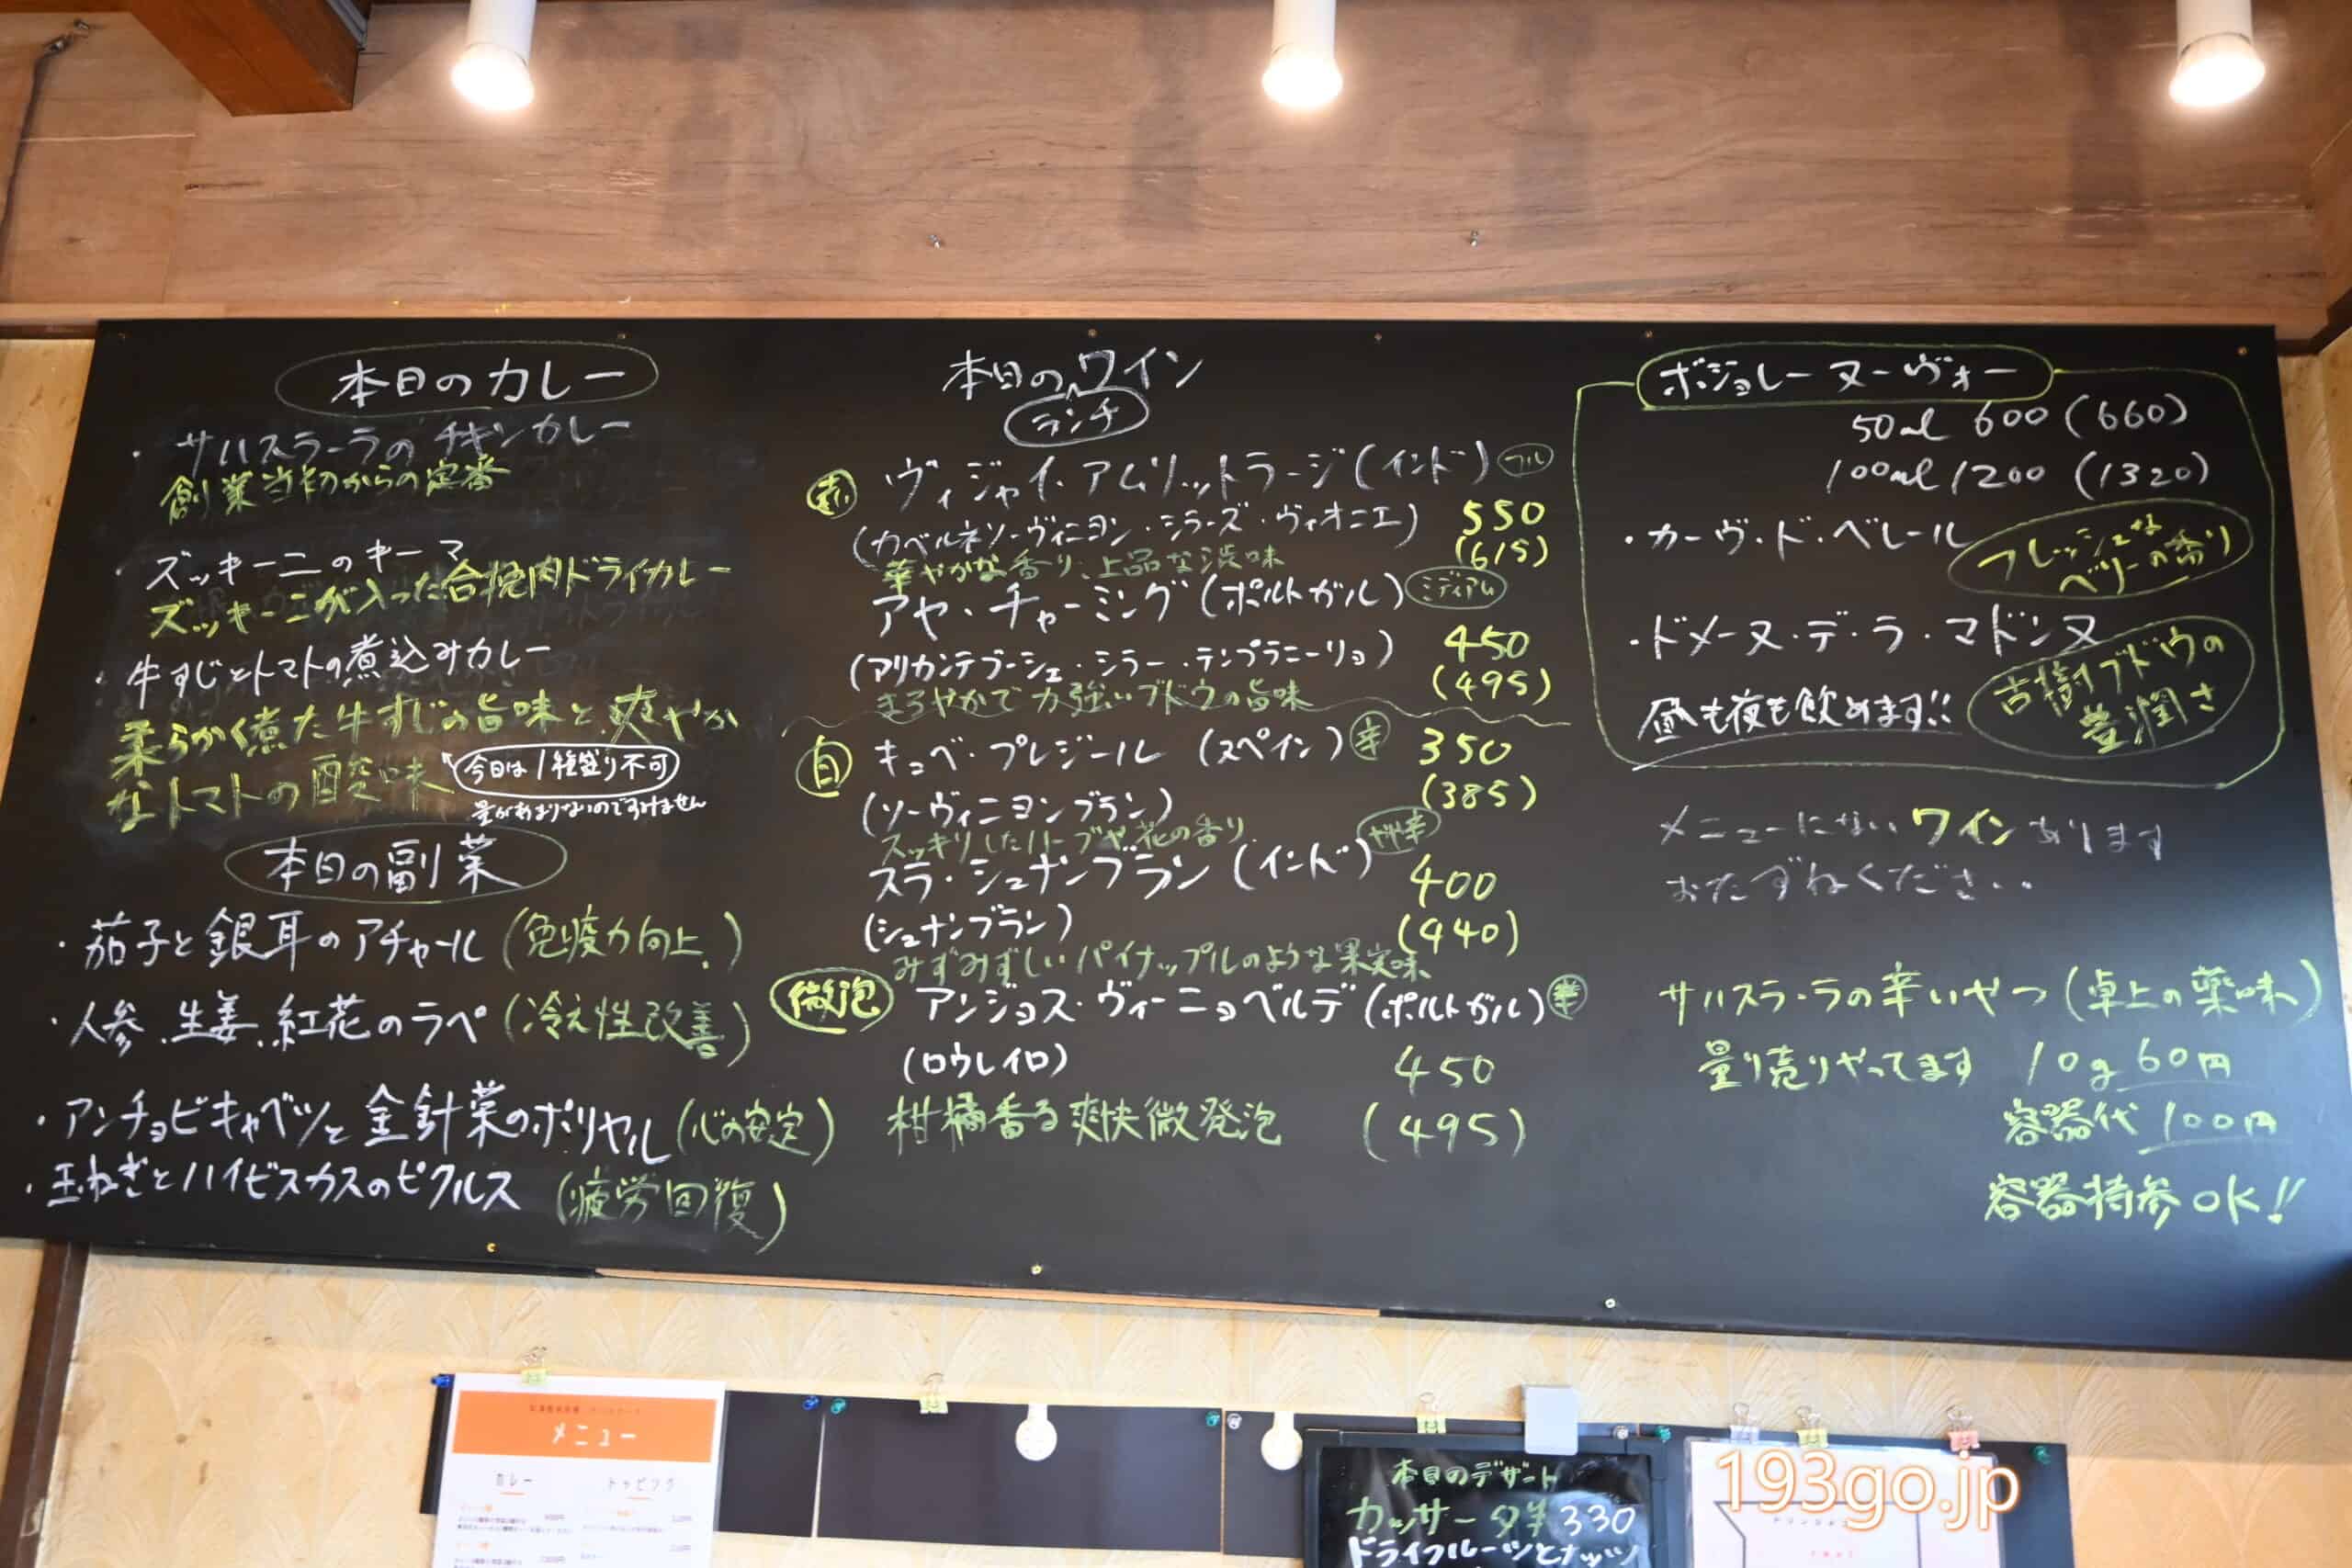 本日のカレー
・サハスラーラのチキンカレー
創業当初からの定番
・ズッキーニのキーマ
ズッキーニが入った合挽肉ドライカレー
・牛すじとトマトの煮込みカレー
柔らかく煮た牛すじの旨味と爽やか
なトマトの酸味
今日は1種盛り不可
量があまりないのですみません
本日の副菜
・茄子と銀耳のアチャール(免疫力向上)
・人参、生姜、紅花のラペ(冷え性改善)
・アンチョビキャベツと金針菜のポリヤル(心の安定)
・玉ねぎとハイビスカスのピクルス (疲労回復)
本日のワイン
ランチ
赤 ヴィジャイ・アムリットラージ(インド) フル
(カベルネソーヴィニヨン・シラーズ・ヴィオニエ) 550
華やかな香り、上品な渋味 (615)
アヤ・チャーミング(ポルトガル) ミディアム
(アリカンテブーシェ・シラー・テンプラニーリョ) 450
まろやかで力強いブドウの旨味 (495)
白 キュベ・プレジール (スペイン) 辛 350
(ソーヴィニヨンブラン) (385)
スッキリしたハーブや花の香り
スラ・シュナンブラン (インド) やや辛 400
(シュナンブラン) (440)
みずみずしいパイナップルのような果実味
微泡 アンジョス・ヴィーニョベルデ(ポルトガル) 辛
(ロウレイロ) 450
柑橘香る爽快微発泡 (495)
ボジョレーヌーヴォー
50ml 600 (660)
100ml 1200 (1320)
・カーヴ・ド・ベレール
フレッシュな
ベリーの香り
・ドメーヌ・デ・ラ・マドンヌ
古樹ブドウの
豊潤さ
昼も夜も飲めます!!
メニューにないワインあります
おたずねください..
サハスラーラの辛いやつ(卓上の薬味)
量り売りやってます 10g 60円
容器代 100円
容器持参OK!!
メニュー
カレー トッピング
本日のデザート
カッサータ 330
ドライフルーツとナッツ
193go.jp